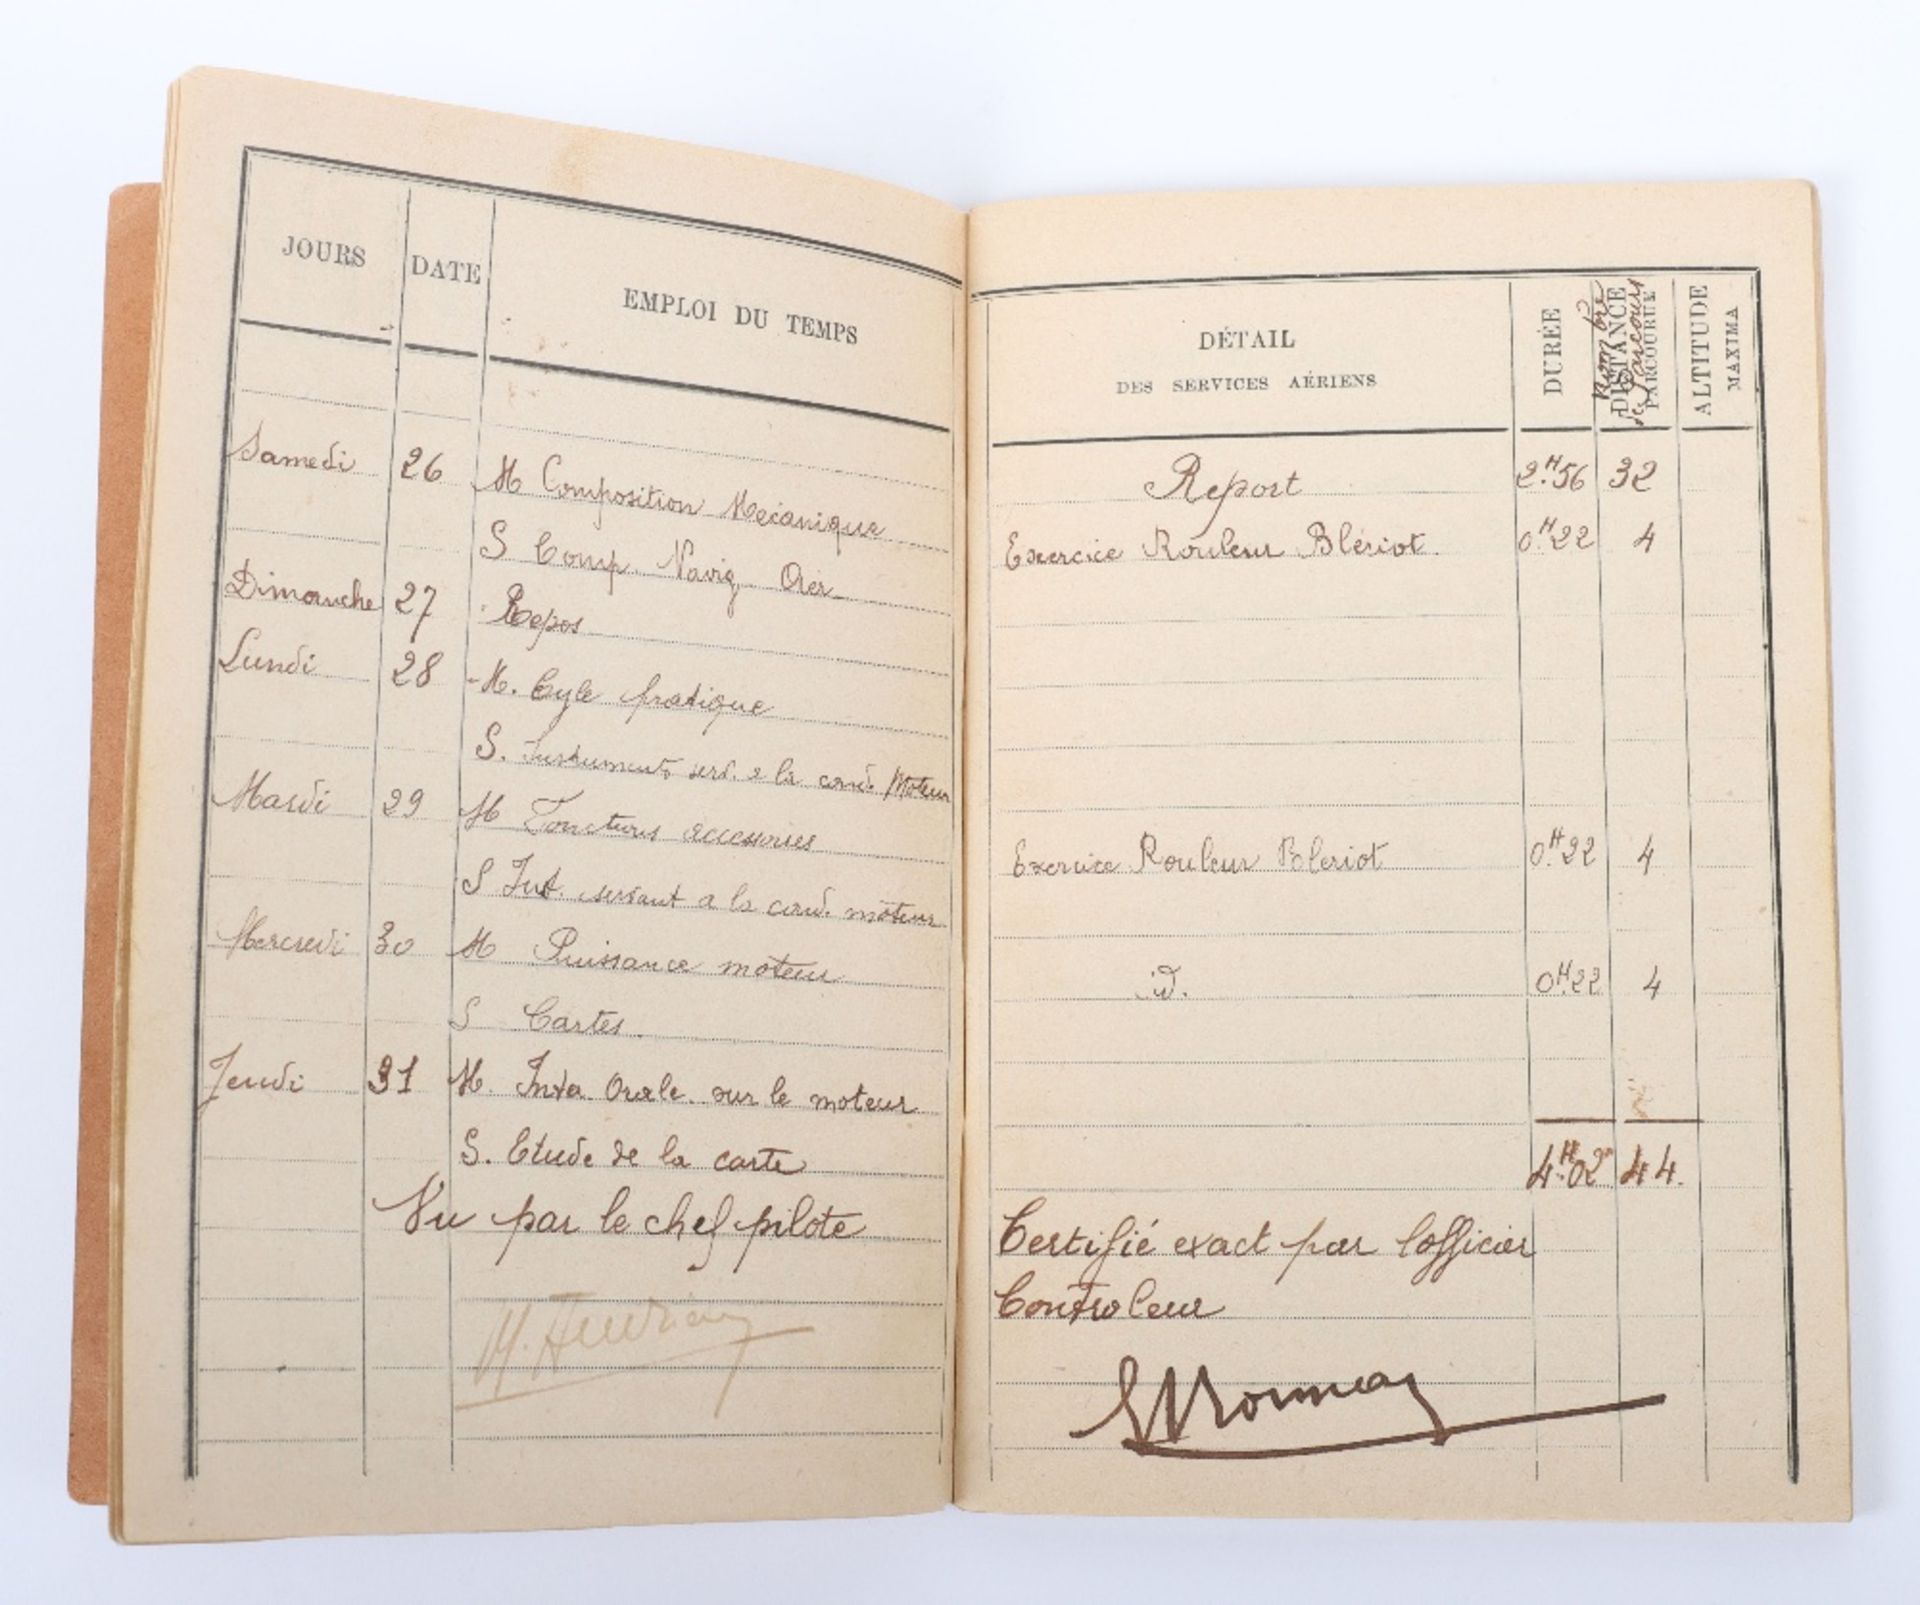 JOURS DATE EMPLOI DU TEMPS
Samedi 26 M Composition Mecanique
S Comp. Navig Aer
Dimanche 27 Repos
Lundi 28 M. Cyle pratique
S. Instruments serv. a la cond. Moteur
Mardi 29 M Fonctions accessoires
S Inst. servant a la cond. moteur
Mercredi 30 M Puissance moteur
S Cartes
Jeudi 31 M. Inter. Orale sur le moteur
S. Etude de la carte
Vu par le chef pilote
DÉTAIL
DES SERVICES AÉRIENS
DURÉE
DISTANCE
PARCOURUE
Nombre
de parcours
ALTITUDE
MAXIMA
Report 2.H56 32
Exercice Rouleur Blériot. 0.H22 4
Exercice Rouleur Bleriot 0.H22 4
id. 0.H22 4
4.H02 44.
Certifié exact par l'officier
Controleur